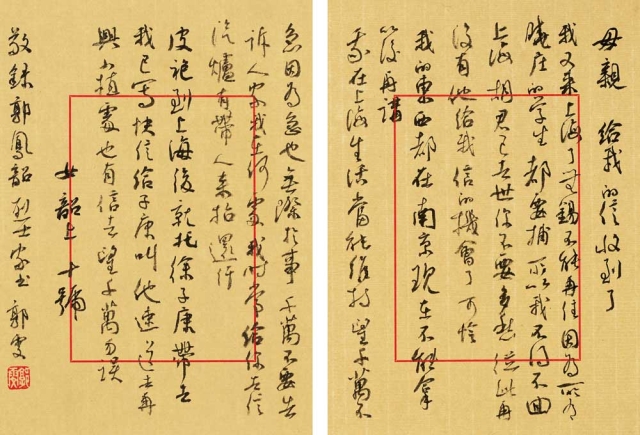 母親 給我的信收到了
我又来上海了無錫不能再住因為所有
曉庄的学生都要捕所以我不得不回
上海胡君已去世你不要多愁從此再
没有他給我信的機會了可惜
我的東西都在南京現在不能拿
以後再講
我在上海生活當能維持望千萬不
急因為急也無際於事千萬不要告
訴人家我在何處我時常給你去信
汽爐有帶人来
皮袍到上海後就托徐子康帶去
我已寫快信給子康叫他速送去再
與小植處也有信去望千萬勿誤
女韶上十號
敬錄郭鳳韶烈士家书 郭雯